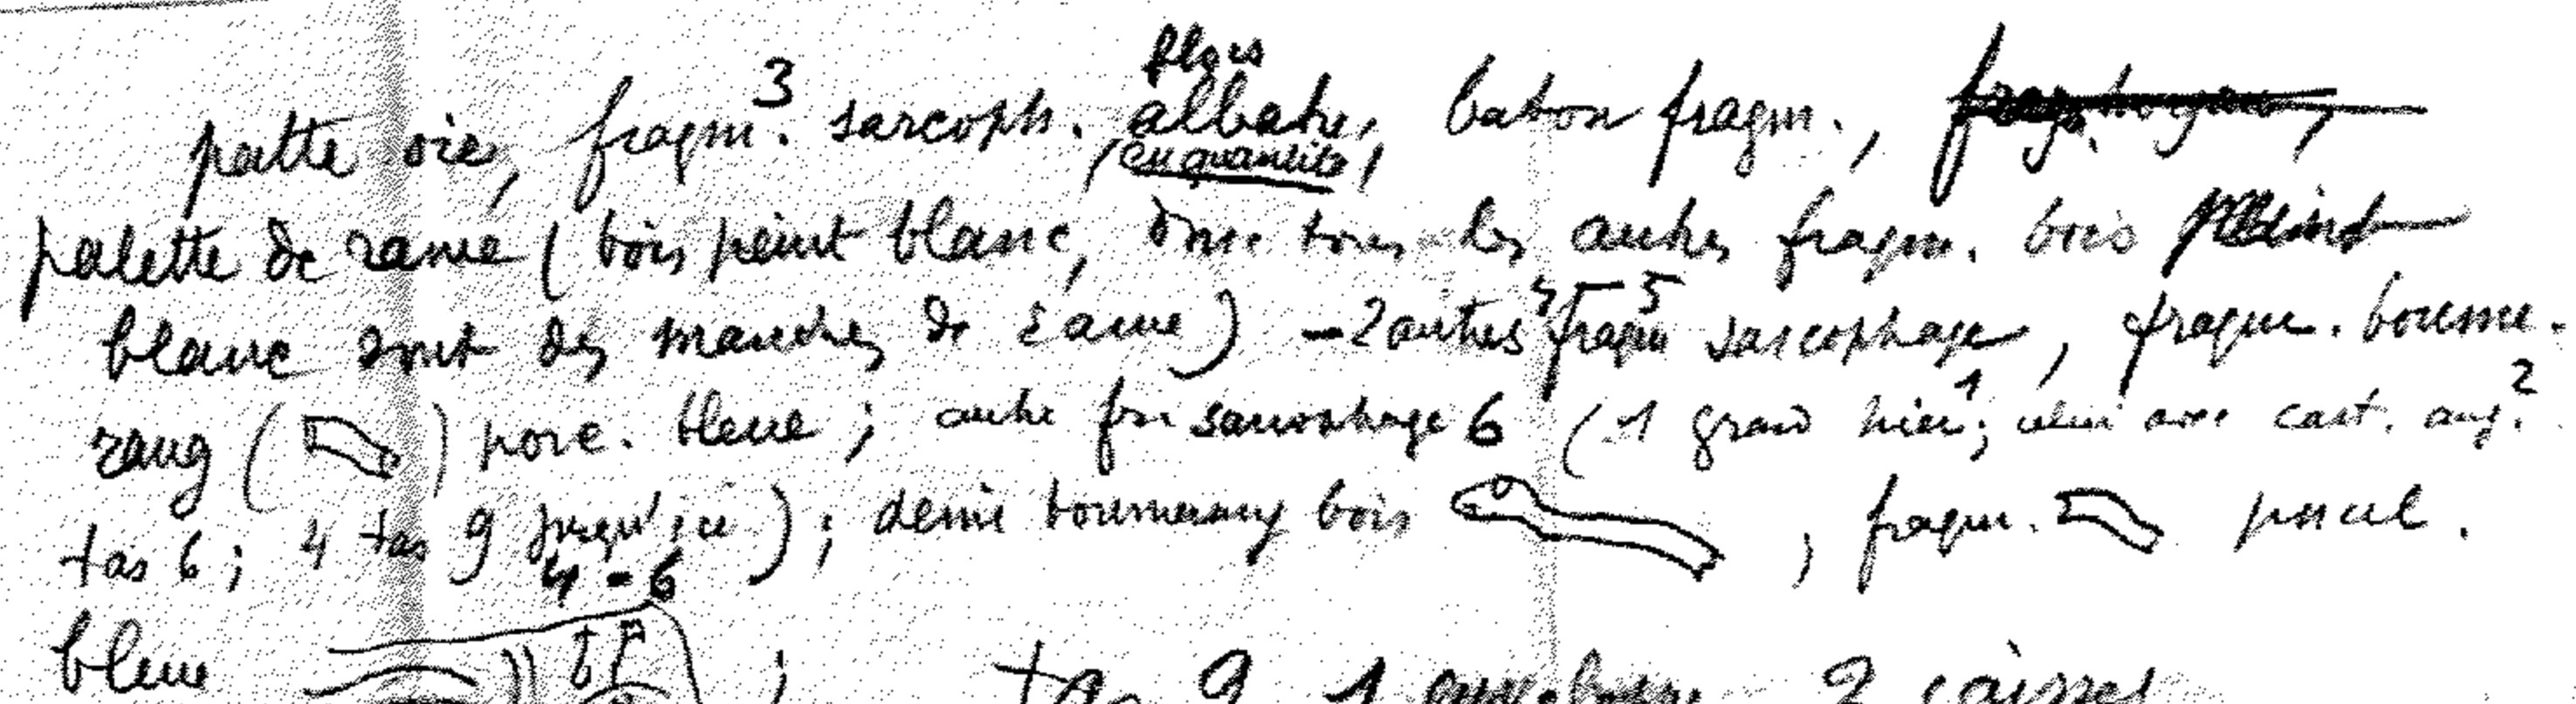 patte oie, fragm.³ sarcoph. albatre, baton fragm.,
en quantité,
palette de rame (bois peint blanc, donc tous les autres fragm. bois peint
blanc sont des manches de rame) - 2 autres fragm 5 sarcophage, fragm. boume.
rang ( ) porc. bleue ; autre fr sarcophage 6 (1 grand hier¹; celui avec cart. ang.²
tas 6 ; 4 tas 9 jusqu'ici) ; demi boumerang bois , fragm. porcel.
4-6
bleue ; tas 9 1 2 caisses